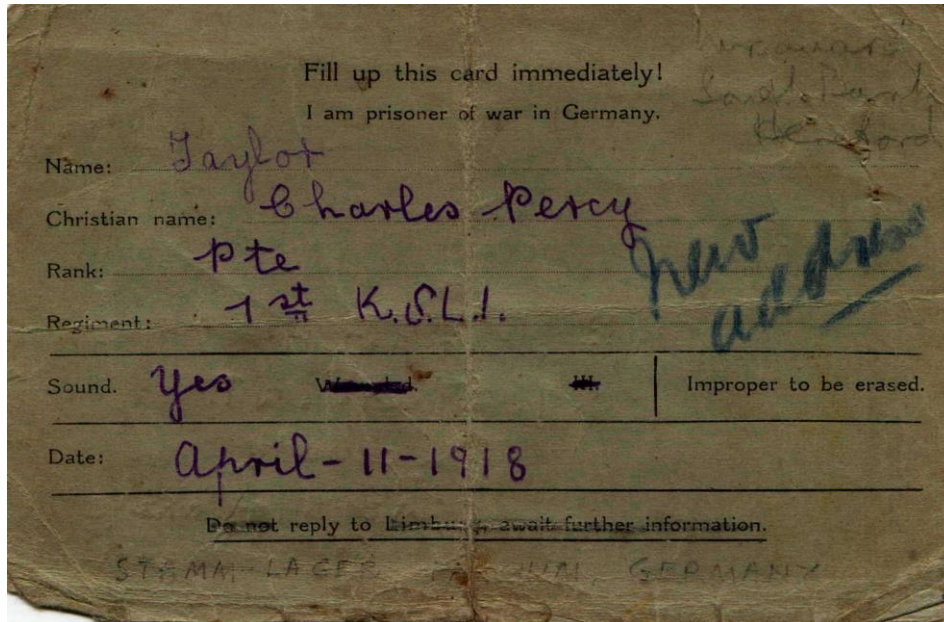 Fill up this card immediately!
I am prisoner of war in Germany.
Hereford
Name: Taylor
Christian name: Charles Percy
Rank: Pte
Regiment: 1st K.S.L.I.
new
address
Sound. Yes Wounded. Ill. Improper to be erased.
Date: April-11-1918
Do not reply to Limburg, await further information.
STAMM-LAGER, GERMANY